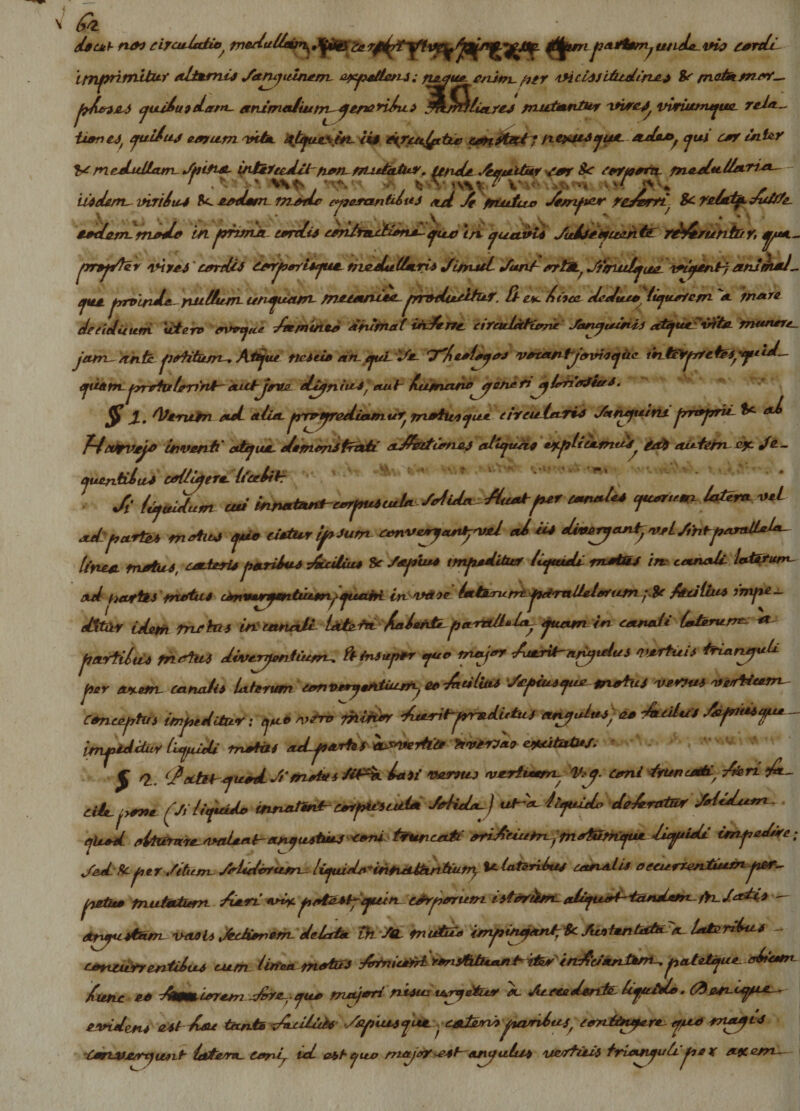 62
docet nos circulatio, medullam partem, unde vis cordi
imprimitur alternis sanguinem expellens; neque enim per vicissitudines & metamor_
phoses quibusdam animalium generibus familiares mutantur vires, viriumque rela_
tiones, quibus eorum vita atque in iis circulatio constat; nexusque adeo, qui cor inter
& medullam spinæ intercedit non mutatur, unde sequitur cor & corpora medullaria
iisdem viribus & eodem modo operantibus ad se mutuo semper referri, & relata fuisse
eodem modo in prima cordis contractione quo in quavis subsequente referuntur, qua_
propter vires cordis corporisque medullaris simul sunt ortæ, simulque vigent; animal_
que proinde nullum unquam mecanice producitur. Et ex hisce deduco liquorem a mare
deciduum utero ovoque fœmineo animal inferre circulatione sanguinis atque vitæ munere
jam ante potitum. Atque nescio an qui se Theologos vocant jovisque interpretes, quid_
quam protulerint aut jove dignius, aut humano generi gloriosius.
§ 1. Verum ad alia progrediamur, motusque circularis sanguini proprii & ab
Harvejo inventi atque demonstrati affectiones aliquas explicamus, eas autem ex se_
quentibus colligere licebit.
Si liquidum cui innatant corpuscula solida fluat per canales quorum latera vel
ad partes motus quo cietur ipsum convergant, vel ab iis divergant, vel sint parallela
lineæ motus, cæteris paribus facilius & sæpius impeditur liquidi motus in canali laterum
ad partes motus convergentium, quam in vase laterum parallelorum; & facilius impe_
ditur idem motus in canali latera habente parallela, quam in canali laterum a
partibus motus divergentium. Et insuper quo major fuerit angulus verticis trianguli
per axem canalis laterum convergentium, eo facilius sæpiusque motus versus verticem
conceptus impeditur: quo vero minor fuerit prædictus angulus, eo facilius sæpiusque
impeditur liquidi motus ad partes a vertice aversas excitatus.
§ 2. Patet quod si motus sit a basi versus verticem V.g. coni truncati, fieri fa_
cile pone (si liquido innatent corpuscula solida) ut a liquido deferatur solidum
quod obturare valeat angustius coni truncati orificium, motumque liquidi impedire;
sed & per situm solidorum liquido innatantium, & lateribus canalis occurrentium per_
petuo mutatum fieri vix potest, quin corporum istorum aliquot tandem in satis
angustam vasis sectionem delata in se mutuo impingant, & sustentata a lateribus
concurrentibus cum linea motus fornicem constituant iter inficiantem, patetque obicem
hunc eo fore, quo majori nisu urgetur a succedente liquido. Denique
evidens est hæc tanto facilius sæpiusque, cæteris paribus, contingere quo magis
convergunt latera coni, id est quo major est angulus verticis trianguli per axem